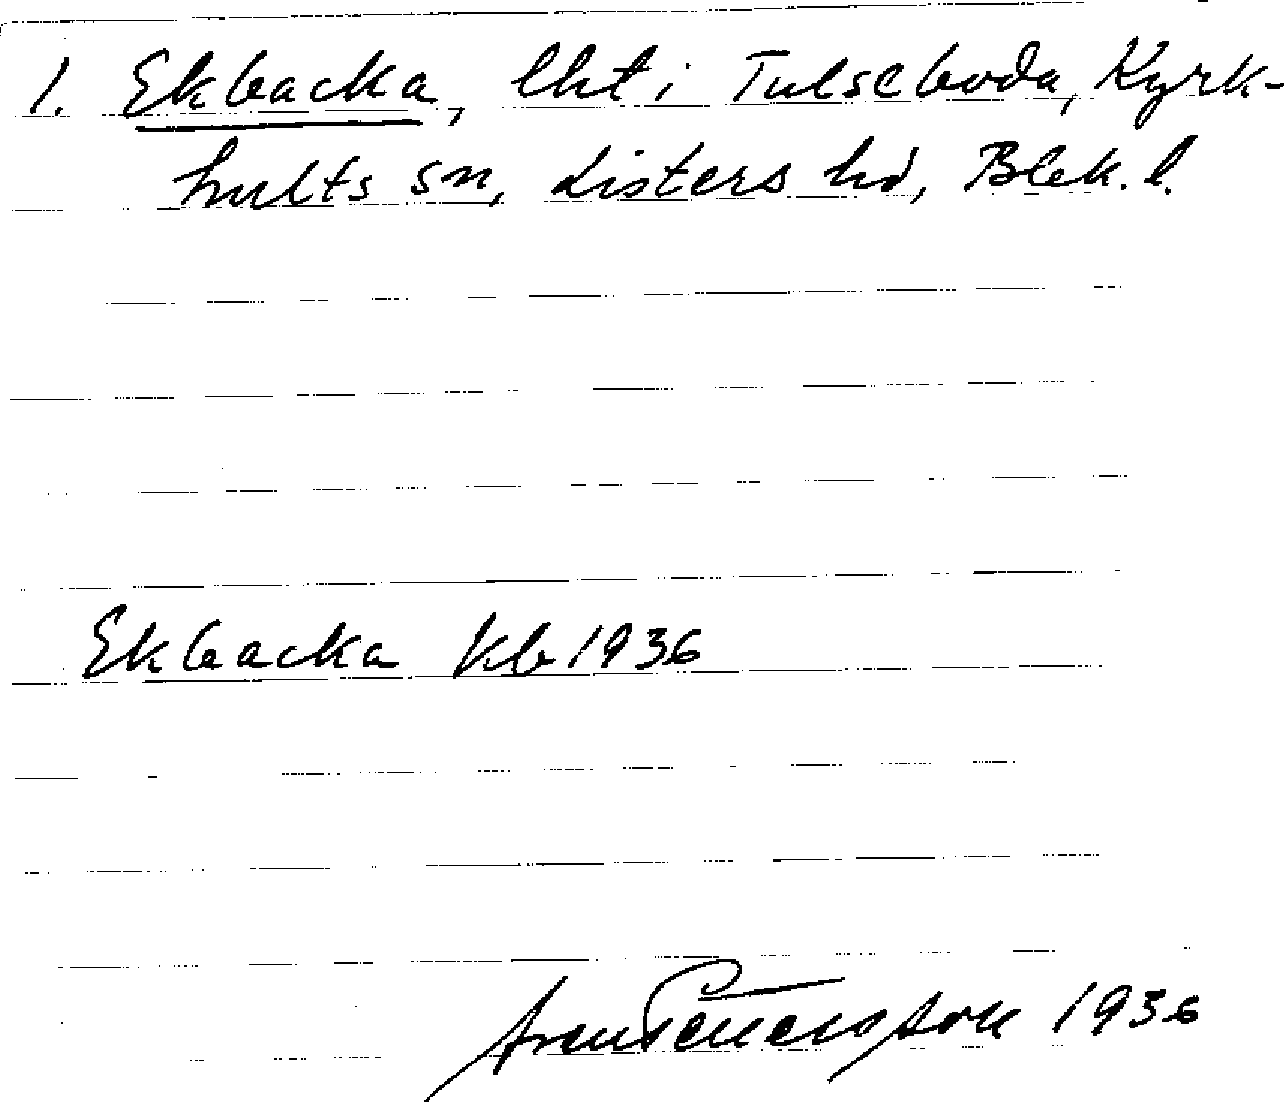 1. Ekbacka, lht i Tulseboda, Kyrk-
hults sn, Listers hd, Blek. l.
Ekbacka kb 1936
Pettersson 1936